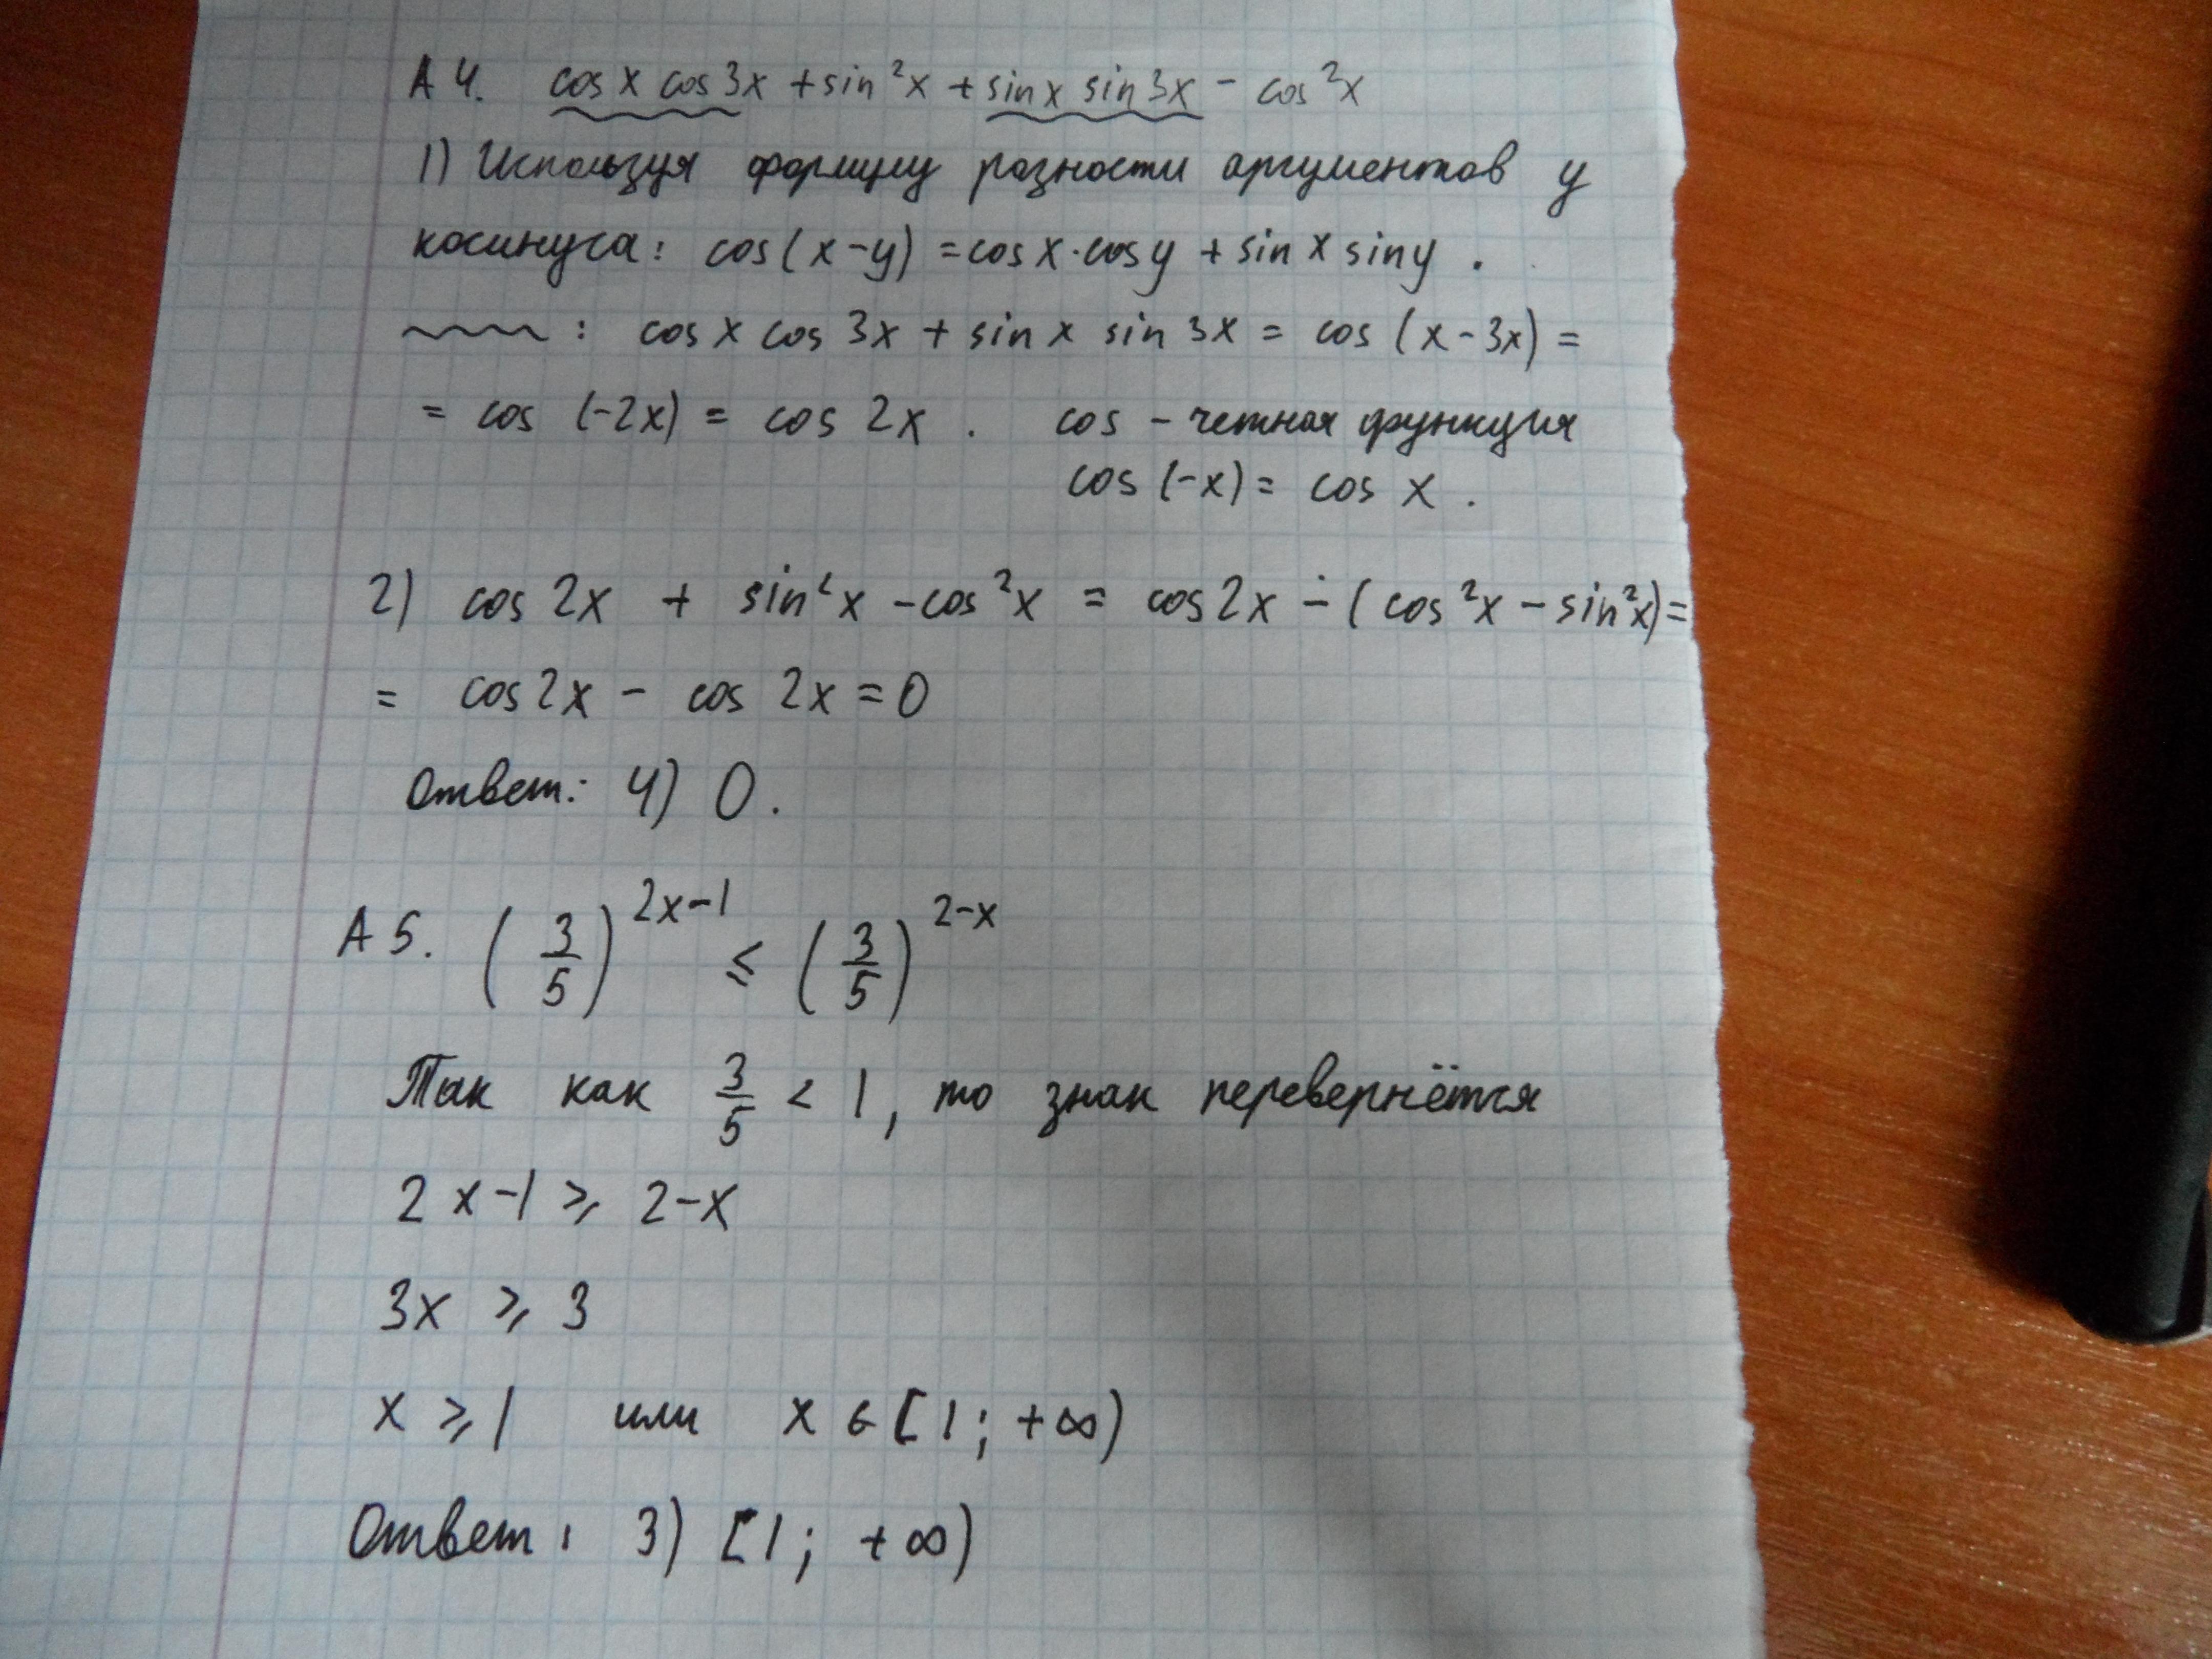 А 4. cos x cos 3x + sin²x + sin x sin 3x - cos²x
1) Используя формулу разности аргументов у
косинуса: cos(x-y) = cos x·cos y + sin x sin y .
~~~ : cos x cos 3x + sin x sin 3x = cos (x-3x) =
= cos (-2x) = cos 2x . cos - четная функция
cos (-x) = cos x .
2) cos 2x + sin²x - cos²x = cos 2x - (cos²x - sin²x) =
= cos 2x - cos 2x = 0
Ответ: 4) 0.
А 5. (3/5)^(2x-1) ≤ (3/5)^(2-x)
Так как 3/5 < 1, то знак перевернётся
2x-1 ≥ 2-x
3x ≥ 3
x ≥ 1 или x ∈ [1; +∞)
Ответ: 3) [1; +∞)